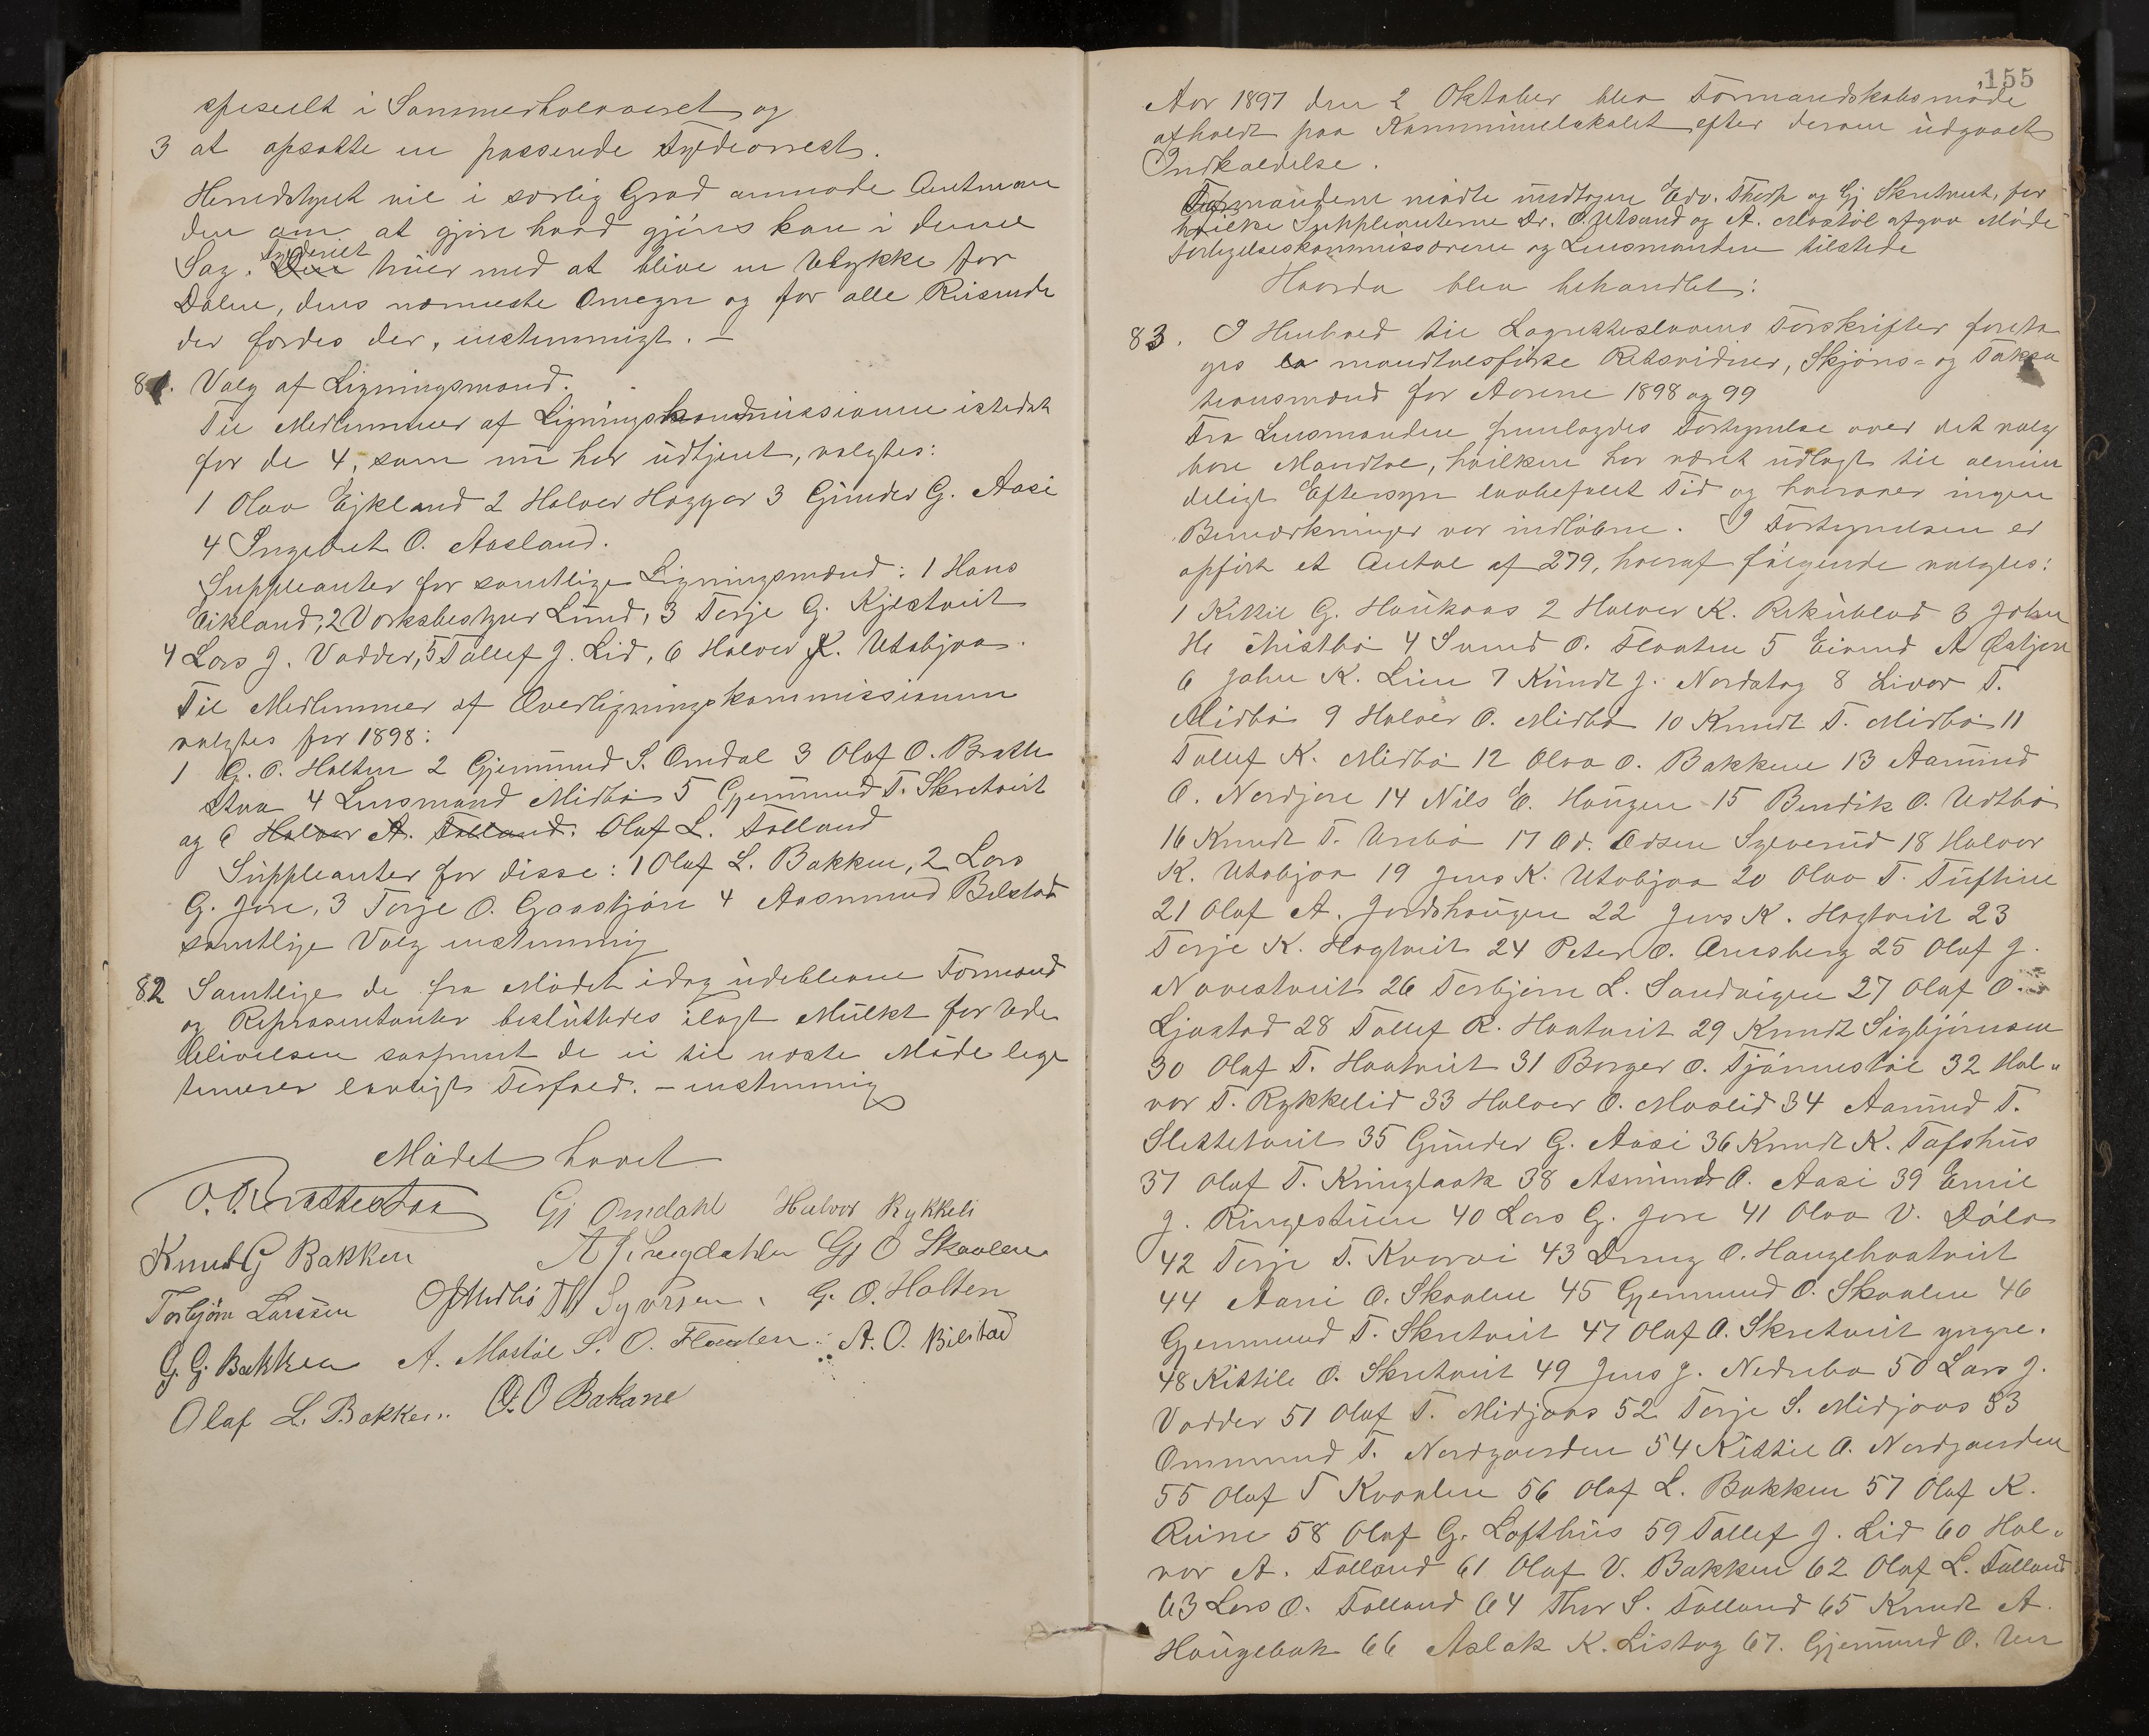 specielt i Sommerhalvaaret og
3 at opsætte en passende Fyldearrest.
Herredstyret vil i særlig Grad anmode Amtman
den om at gjøre hvad gjøres kan i denne
Sag. Fylderiet truer med at blive en Ulykke for
Dalen, dens nærmeste Omegn og for alle Reisende
der færdes der, enstemmigt. –
81. Valg af Ligningsmænd.
Til Medlemmer af Ligningskommissionen istedet
for de 4, som nu har udtjent, valgtes:
1 Olav Ejkland 2 Halvor Haggar 3 Gunder G. Aasi
4 Ingebret O. Aasland.
Suppleanter for samtlige Ligningsmænd: 1 Hans
Eikland, 2 Værksbestyrer Lund, 3 Terje G. Kjestveit
4 Lars J. Vadder, 5 Tallef J. Lid, 6 Halvor K. Utabjaa.
Til Medlemmer af Overligningskommissionen
valgtes for 1898:
1 G. O. Holten 2 Gjermund S. Omdal 3 Olaf O. Bratte
staa 4 Lensmand Midbø 5 Gjermund T. Skretveit
og 6 Halvor A. Tølland. Olaf L. Tølland
Suppleanter for disse: 1 Olaf L. Bakken, 2 Lars
G. Jore, 3 Terje O. Gaastjøn 4 Aasmund Bilstad
samtlige Valg enstemmig
82 Samtlige de fra Mødet idag udeblevne Formænd
og Repræsentanter besluttedes ilagt Mulkt for Ude
blivelsen saafremt de ei til næste Møde legi
timerer lovligt Forfald. – enstemmig
Mødet hævet
O. O. Brattestaa Gj Omdahl Halvor Rykkeli
Knud G Bakken Gj O Skaalen
Torbjørn Larssen O J Midbø Th Syvrsen. G. O. Holten
G. G. Bakken A. Mostøl S. O. Flaaten. A. O. Bilstad
Olaf L. Bakken. O. O Bakane
155
Aar 1897 den 2 Oktober blev Formandskabsmøde
afholdt paa Kommunelokalet efter derom udgaaet
Indkaldelse.
Formændene mødte undtagen Edv. Thorp og Gj Skretveit, for
hvilke Suppleanterne Dr. O. Utsund og A. Mostøl afgav Møde
Forligelseskommissærerne og Lensmanden tilstede
Hvorda blev behandlet:
83. I Henhold til Lagrettelovens Forskrifter foreto
ges mandtalsførte Retsvidner, Skjøns- og Taksa
tionsmænd for Aarene 1898 og 99
Fra Lensmanden fremlagdes Fortegnelse over det valg
bare Mandtal, hvilken har været udlagt til almin
deligt Eftersyn lovbefalet Tid og hvorover ingen
Bemærkninger var indløbne. I Fortegnelsen er
opført et Antal af 279, hvoraf følgende valgtes:
1 Kittil G. Haukaas 2 Halvor K. Rekublad 3 John
H. Mistbø 4 Svend O. Flaaten 5 Eivind A Østjore
6 John K. Lien 7 Knudt J. Nordstog 8 Livor T.
Midbø 9 Halvor O. Midbø 10 Knudt T. Midbø 11
Tallef K. Midbø 12 Olav O. Bakkene 13 Aamund
O. Nordjore 14 Nils E. Haugen 15 Bendik O. Udtbø
16 Knudt T. Urebø 17 Od. Odsen Syverud 18 Halvor
K. Utabjaa 19 Jens K. Utabjaa 20 Olav T. Tuftine
21 Olaf A. Jordshaugen 22 Jens K. Hagtveit 23
Terje K. Hagtveit 24 Peter O. Arnsberg 25 Olaf J.
Navestveit 26 Torbjørn L. Sandvigen 27 Olaf O.
Ljostad 28 Tallef R. Hvatveit 29 Knudt Sigbjørnsen
30 Olaf T. Hvatveit 31 Borger O. Tjønnestøl 32 Hal-
vor T. Rykkelid 33 Halvor O. Moslid 34 Aamund T.
Slettetveit 35 Gunder G. Aasi 36 Knudt K. Tafshus
37 Olaf T. Kringlaak 38 Asmund O. Aasi 39 Emil
J. Ringestuen 40 Lars G. Jore 41 Olav V. Døla
42 Terje T. Kvarvi 43 Dreng O. Haugehvatveit
44 Aani O. Skaalen 45 Gjermund O. Skaalen 46
Gjermund T. Skretveit 47 Olaf O. Skretveit yngre.
48 Kittil O. Skretveit 49 Jens J. Nedrebø 50 Lars J.
Vadder 51 Olaf T. Midjaas 52 Terje S. Midjaas 53
Ommund T. Nordgaarden 54 Kittil O. Nordgaarden
55 Olaf T Kvaalen 56 Olaf L. Bakken 57 Olaf K.
Ruine 58 Olaf G. Lofthus 59 Tallef J. Lid 60 Hal-
vor A. Tølland 61 Olaf V. Bakken 62 Olaf L. Tølland
63 Lars O. Tølland 64 Thor S. Tølland 65 Knudt A.
Haugebak 66 Aslak K. Listog 67. Gjermund O. Ven